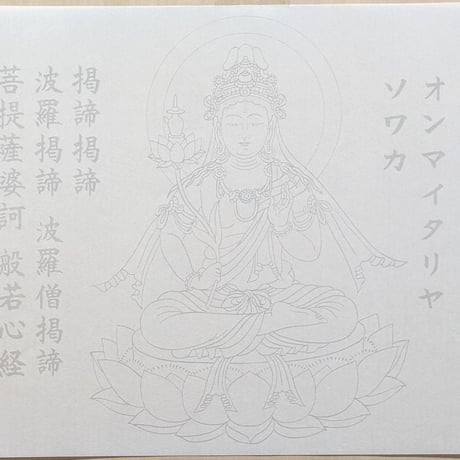 オンマイタリヤ
ソワカ
掲諦掲諦
波羅掲諦 波羅僧掲諦
菩提薩婆訶 般若心経